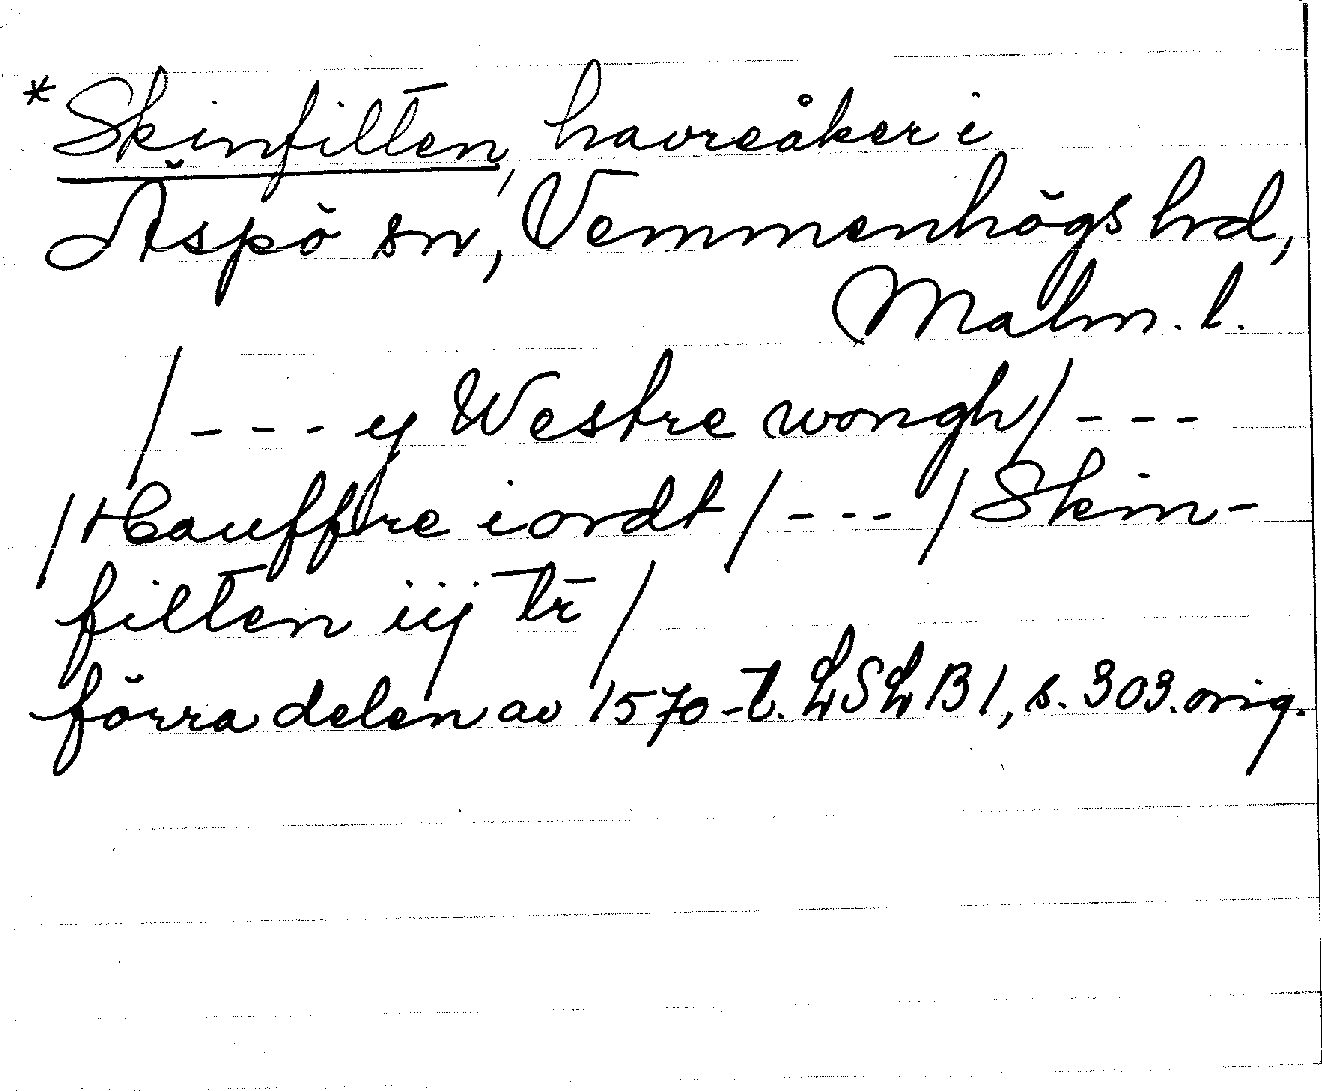 *Skinfilten, havreåker i
Äspö sn, Vemmenhögs hd,
Malm. l.
/--- y Westre wongh/---
/Hauffre iordt/---/Skin-
filten iij tr̄/
förra delen av 1570-t. LSLB1, s. 303. orig.